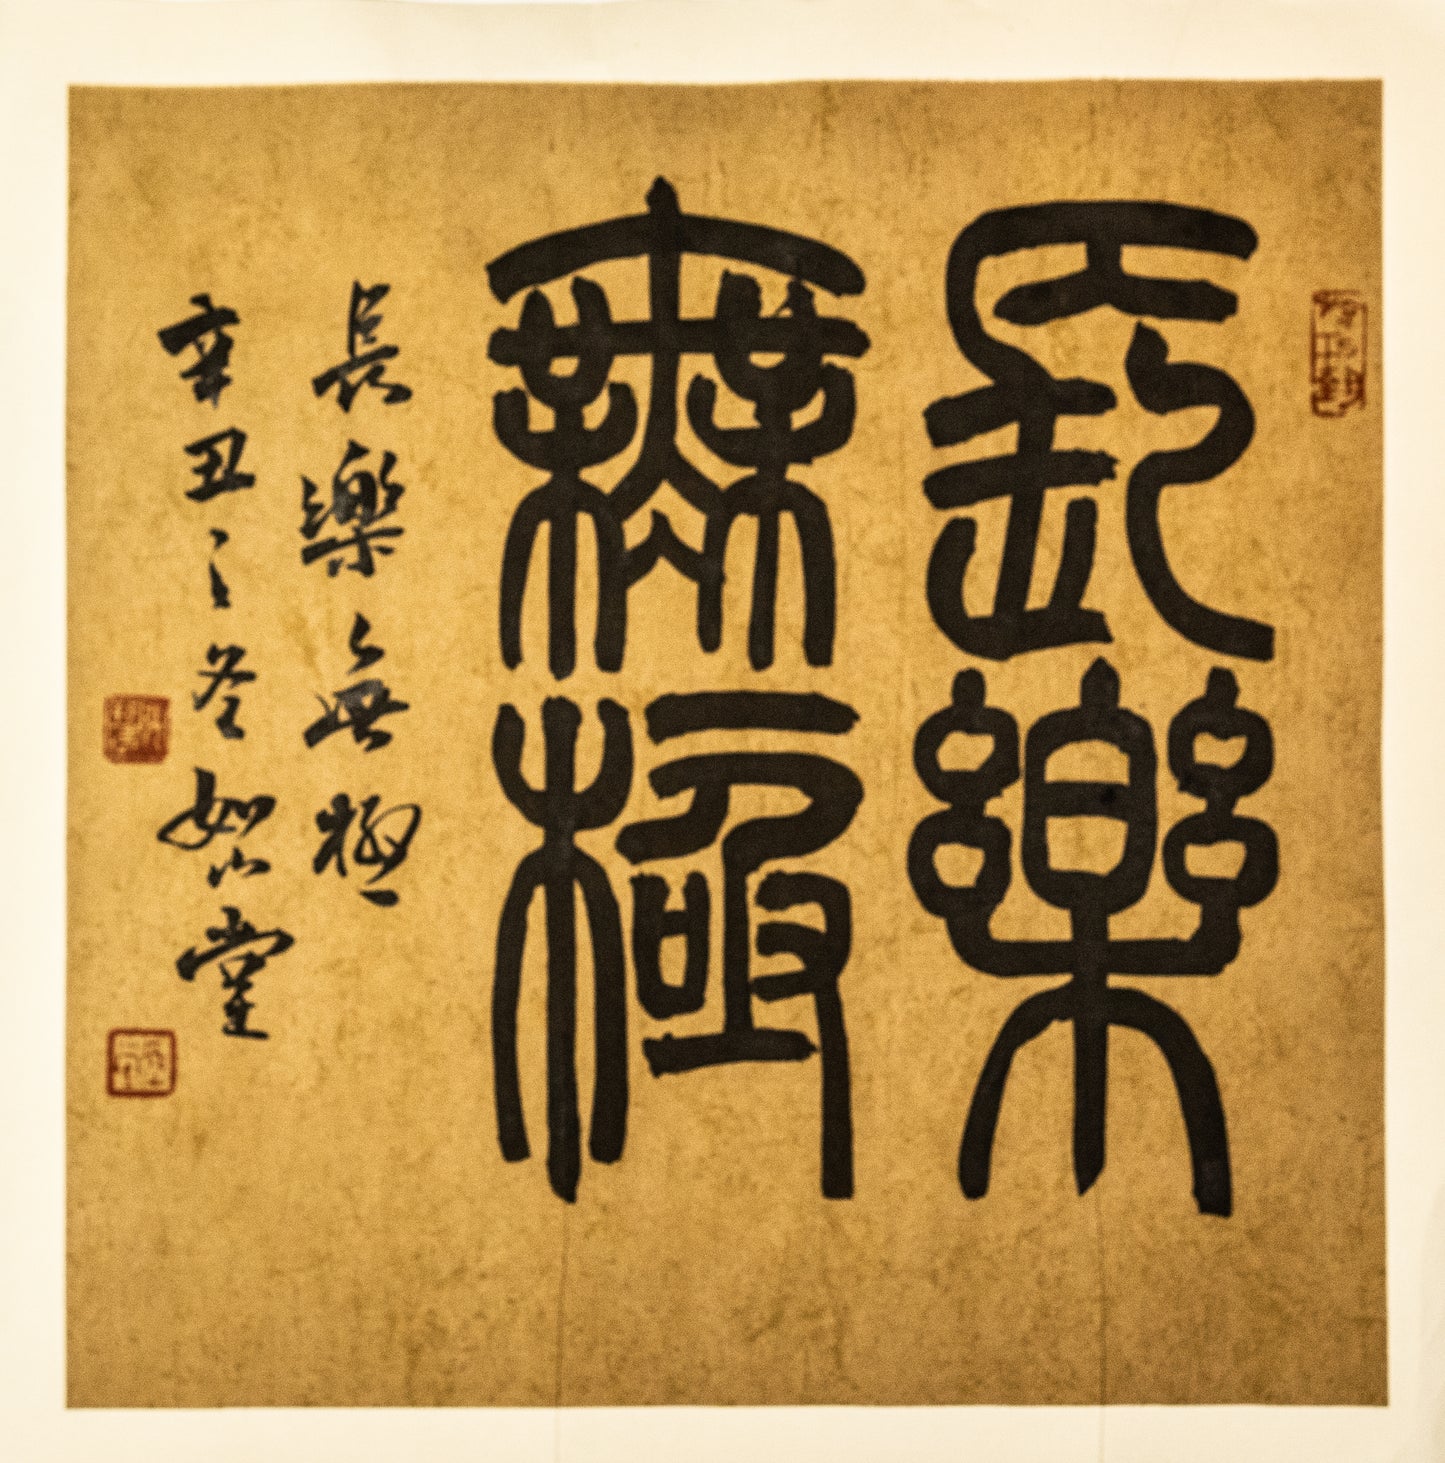 長樂
無極
長樂無極
辛丑之冬如心堂